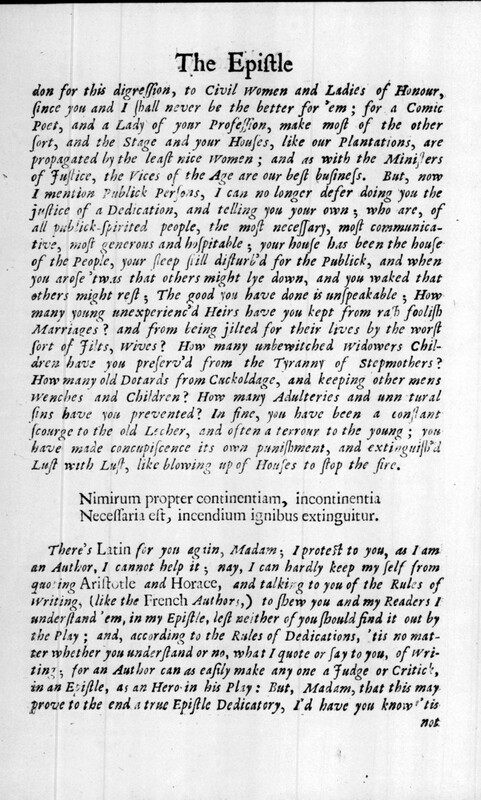 The Epiſtle
don for this digreſſion, to Civil Women and Ladies of Honour,
ſince you and I ſhall never be the better for 'em; for a Comic
Poet, and a Lady of your Profeſſion, make moſt of the other
ſort, and the Stage and your Houſes, like our Plantations, are
propagated by the leaſt nice Women; and as with the Miniſters
of Juſtice, the Vices of the Age are our beſt buſineſs. But, now
I mention Publick Perſons, I can no longer defer doing you the
juſtice of a Dedication, and telling you your own; who are, of
all publick-ſpirited people, the moſt neceſſary, moſt communica-
tive, moſt generous and hoſpitable; your houſe has been the houſe
of the People, your ſleep ſtill diſturb'd for the Publick, and when
you aroſe 'twas that others might lye down, and you waked that
others might reſt; The good you have done is unſpeakable; How
many young unexperienc'd Heirs have you kept from raſh fooliſh
Marriages? and from being jilted for their lives by the worſt
ſort of Jilts, Wives? How many unbewitched Widowers Chil-
dren have you preſerv'd from the Tyranny of Stepmothers?
How many old Dotards from Cuckoldage, and keeping other mens
Wenches and Children? How many Adulteries and unnatural
ſins have you prevented? In fine, you have been a conſtant
ſcourge to the old Lecher, and often a terrour to the young; you
have made concupiſcence its own puniſhment, and extinguiſh'd
Luſt with Luſt, like blowing up of Houſes to ſtop the fire.
Nimirum propter continentiam, incontinentia
Neceſſaria eſt, incendium ignibus extinguitur.
There's Latin for you again, Madam; I proteſt to you, as I am
an Author, I cannot help it; nay, I can hardly keep my ſelf from
quoting Ariſtotle and Horace, and talking to you of the Rules of
Writing, (like the French Authors,) to ſhew you and my Readers I
underſtand 'em, in my Epiſtle, leſt neither of you ſhould find it out by
the Play; and, according to the Rules of Dedications, 'tis no mat-
ter whether you underſtand or no, what I quote or ſay to you, of Wri-
ting; for an Author can as eaſily make any one a Judge or Critick,
in an Epiſtle, as an Hero in his Play: But, Madam, that this may
prove to the end a true Epiſtle Dedicatory, I'd have you know 'tis
not